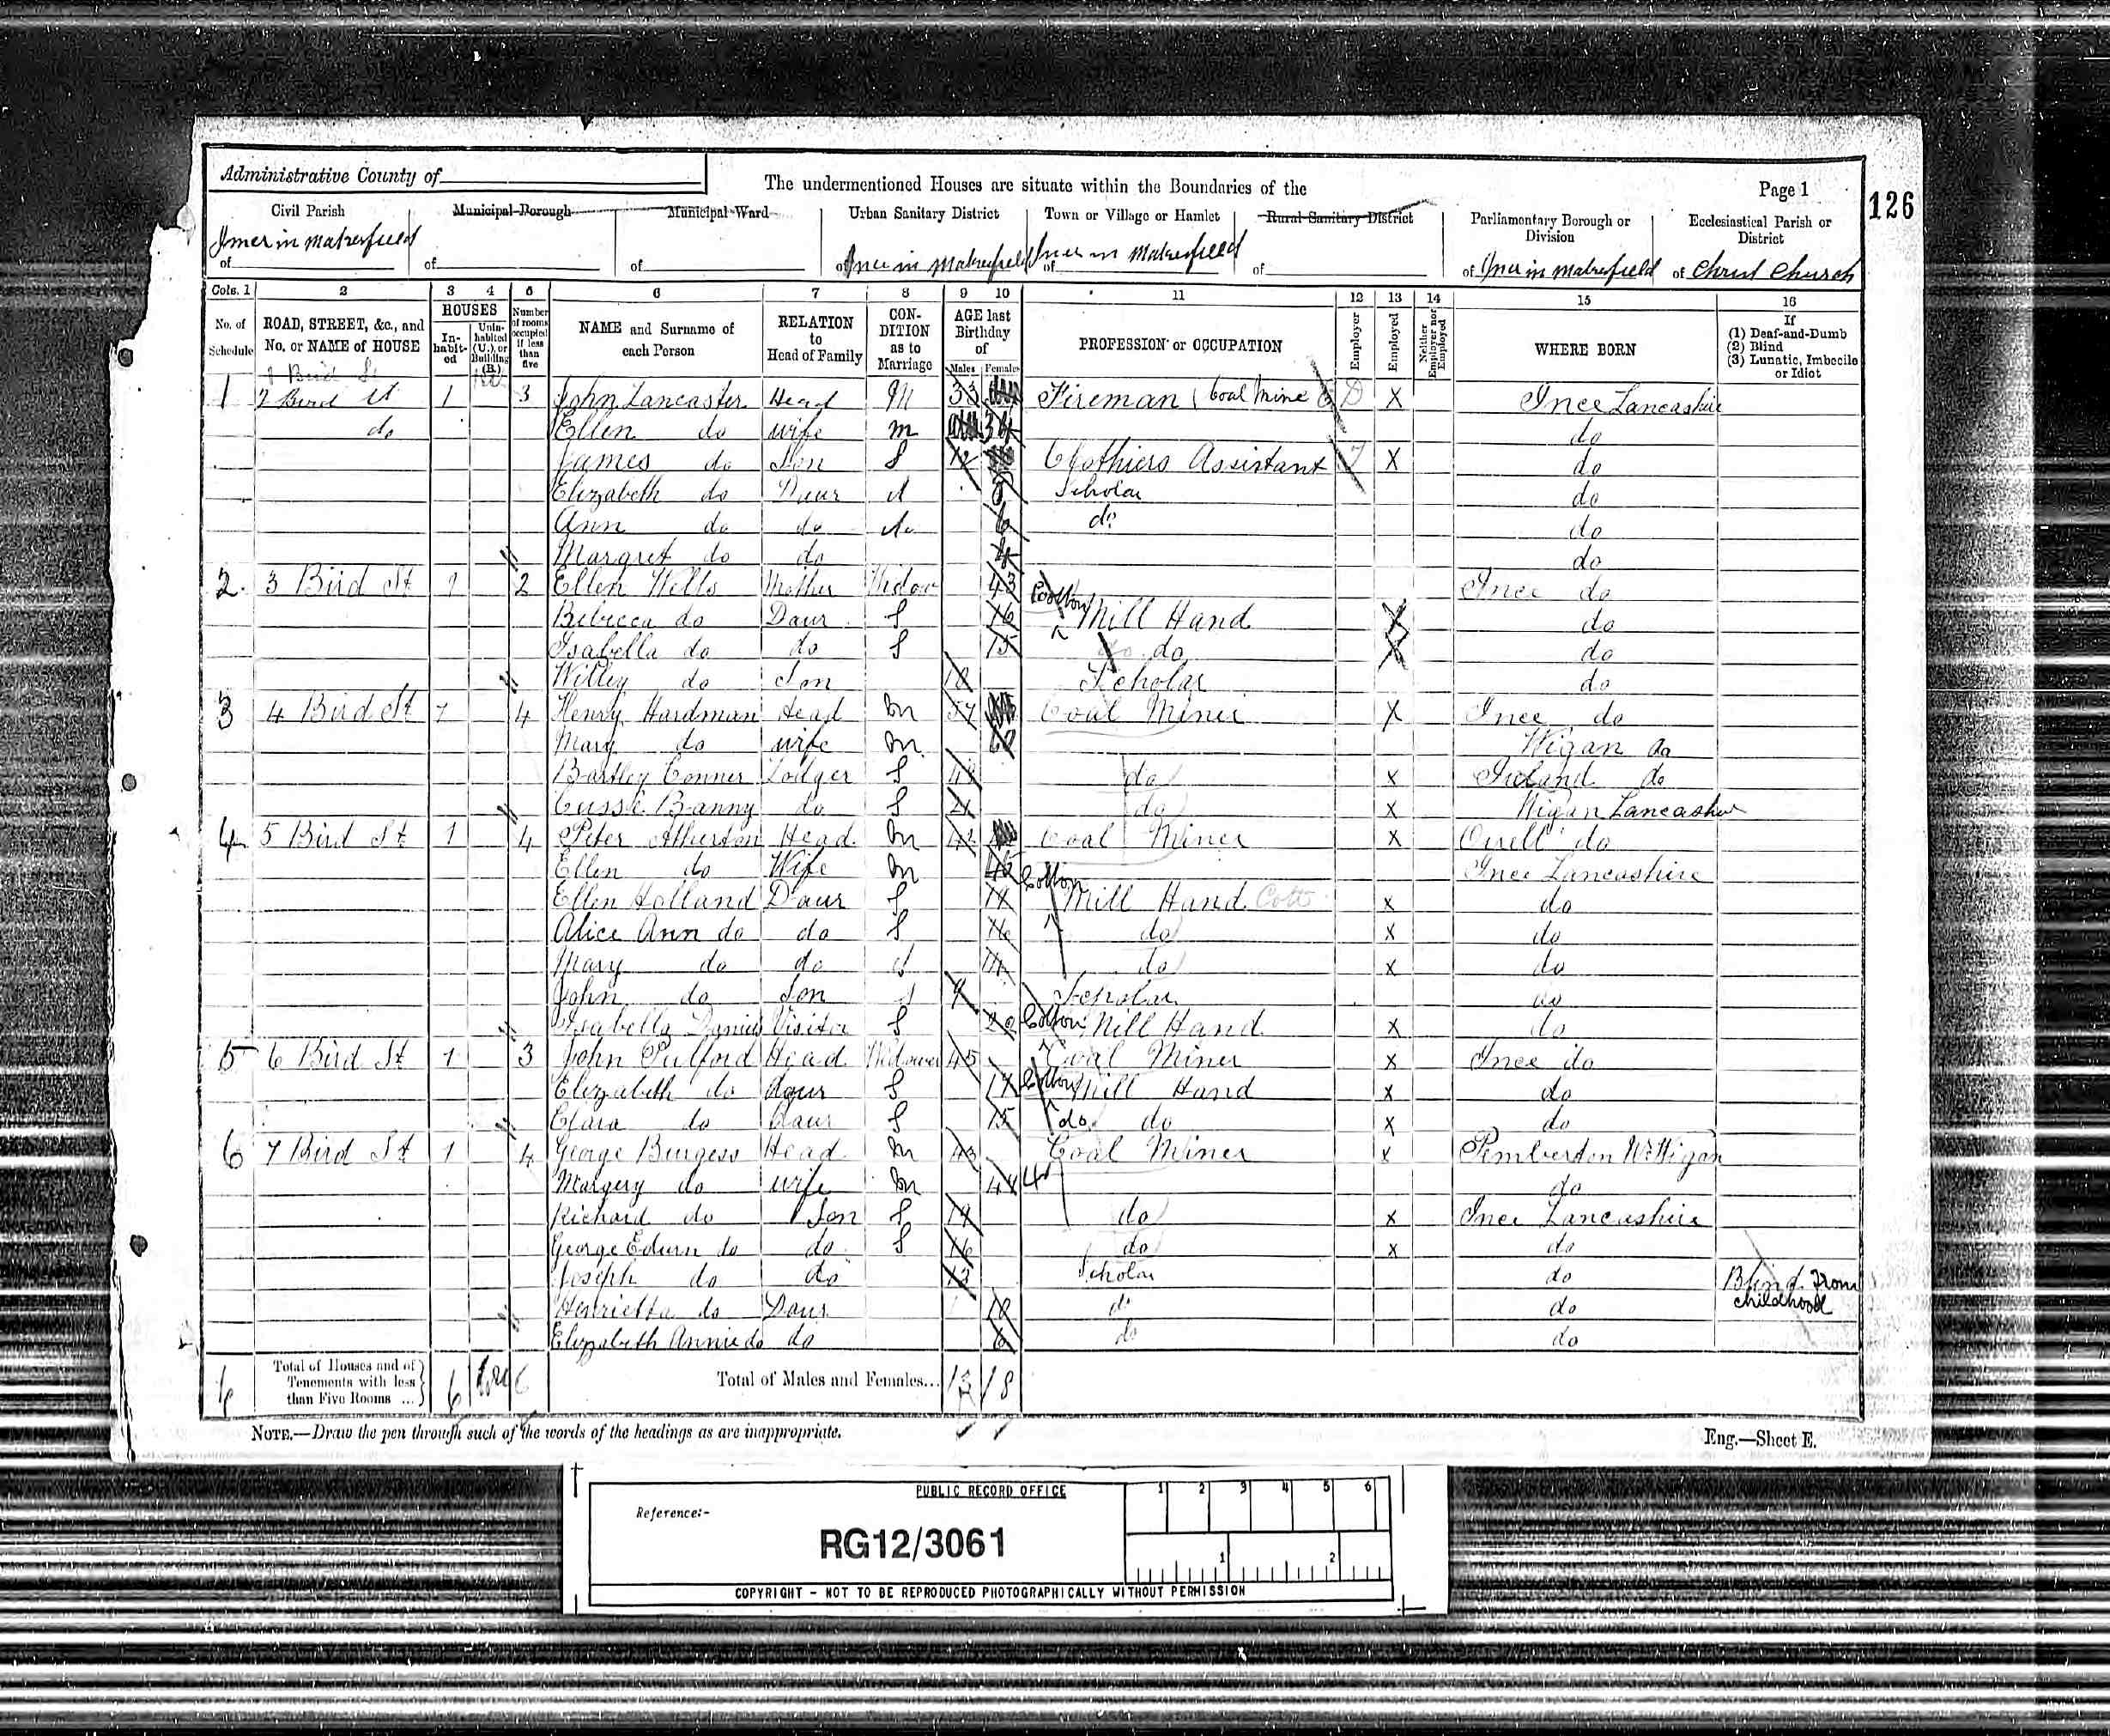 Administrative County of
The undermentioned Houses are situate within the Boundaries of the
Page 1
126
Civil Parish Municipal Borough Municipal Ward Urban Sanitary District Town or Village or Hamlet Rural Sanitary District Parliamentary Borough or Division Ecclesiastical Parish or District
of Ince in Makerfield of of of Ince in Makerfield of Ince in Makerfield of of Ince in Makerfield of Christ Church
Cols. 1 2 3 4 5 6 7 8 9 10 11 12 13 14 15 16
No. of Schedule ROAD, STREET, &c., and No. or NAME of HOUSE HOUSES In-habit-ed Unin-habited (U.), or Building (B.) Number of rooms occupied if less than five NAME and Surname of each Person RELATION to Head of Family CON-DITION as to Marriage AGE last Birthday of Males Females PROFESSION or OCCUPATION Employer Employed Neither Employer nor Employed WHERE BORN If (1) Deaf-and-Dumb (2) Blind (3) Lunatic, Imbecile or Idiot
1 Bird St
1 2 Bird St 1 3 John Lancaster Head M 33 Fireman (Coal Mine X Ince Lancashire
do Ellen do wife m 34 do
James do Son S 12 Clothiers Assistant X do
Elizabeth do Daur 8 Scholar do
Ann do do do 6 do do
Margret do do 4 do
2 3 Bird St 1 2 Ellen Wells Mother Widow 43 Ince do
Bibicca do Daur S 16 Cotton Mill Hand X do
Isabella do do S 15 do do X do
Willey do Son 10 Scholar do
3 4 Bird St 1 4 Henry Hardman Head M 57 Coal Miner X Ince do
Mary do wife M 62 Wigan do
Bartley Conner Lodger S do X Ireland do
Banny do S 21 do X Wigan Lancashire
4 5 Bird St 1 4 Peter Atherton Head M 42 Coal Miner X Orell do
Ellen do Wife M 45 Ince Lancashire
Ellen Holland Daur S 19 Cotton Mill Hand Cott X do
Alice Ann do do S 16 do X do
Mary do do S 14 do X do
John do Son S 9 Scholar do
Isabella Daniels Visitor S 20 Cotton Mill Hand X do
5 6 Bird St 1 3 John Pulford Head Widower 45 Coal Miner X Ince do
Elizabeth do daur S 17 Cotton Mill Hand X do
Clara do daur S 15 do do X do
6 7 Bird St 1 4 George Burgess Head M 43 Coal Miner X Pemberton Wigan
Margery do wife M 44 do
Richard do Son S 19 do X Ince Lancashire
George Edwin do do S 16 do X do
Joseph do do 13 Scholar do Blind From childhood
Henrietta do Daur 10 do do
Elizabeth Annie do do 6 do do
6 Total of Houses and of Tenements with less than Five Rooms ... 6 6 Total of Males and Females... 13 18
NOTE.—Draw the pen through such of the words of the headings as are inappropriate.
Eng.—Sheet E.
PUBLIC RECORD OFFICE
1 2 3 4 5 6
Reference:-
RG12/3061
1 2
COPYRIGHT - NOT TO BE REPRODUCED PHOTOGRAPHICALLY WITHOUT PERMISSION